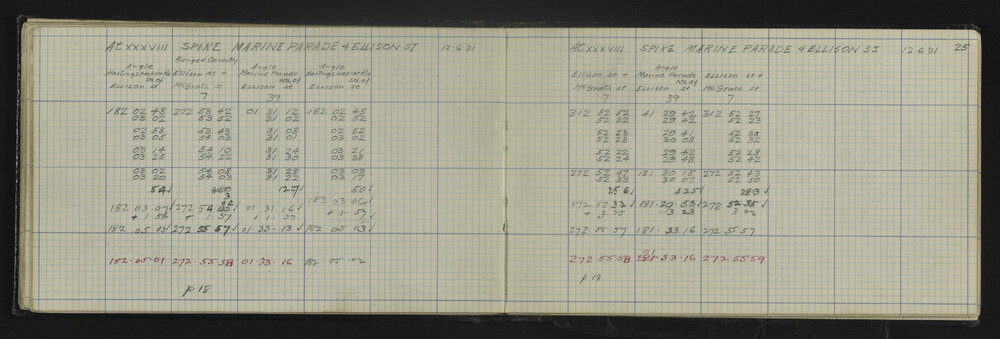 At XXXVIII SPIKE MARINE PARADE & ELLISON ST 12.6.31
Ranged Correctly
Angle Angle Angle
Hastings Napier Rd Ellison St + Marine Parade Hastings Napier Rd
Sth of Nth of Sth of
Ellison St McGrath St Ellison St Ellison St
7 39
182 02 48 272 53 42 01 31 12 182 02 45
03 02 53 52 31 02 02 52
02 58 53 43 31 08 02 52
03 05 54 02 31 01 03 02
03 14 54 10 31 24 03 21
03 25 54 22 31 30 03 38
03 02 54 08 31 28 03 03
03 20 54 03 31 22 03 17
54 127 50
182 03 07 272 54 01 31 16 182 03 06
+ 1 56 + 1.57 + 1.57 + 1.57
182 05 03 272 55 57 01.33.13 182 05 03
182.05.01 272.55.58 01.33.16 182.05.02
p 18
At XXXVIII SPIKE MARINE PARADE & ELLISON ST 12 6 31 25
Angle
Ellison St + Marine Parade Ellison St +
Nth of
McGrath St Ellison St McGrath St
7 39 7
312 52 52 41 29 42 312 52 27
52 32 29 42 52 23
52 23 29 41 52 38
52 23 30 08 52 32
52 22 29 42 52 28
52 24 29 48 52 42
272 52 47 181 30 15 272 52 43
52 33 30 07 52 50
256 425 283
272 52 32 181.29 53 272 52 35
+ 3 25 3 23 3 22
272.55.57 181.33.16 272 55 57
272 55 58 01 33.16 272 55 59
p 18